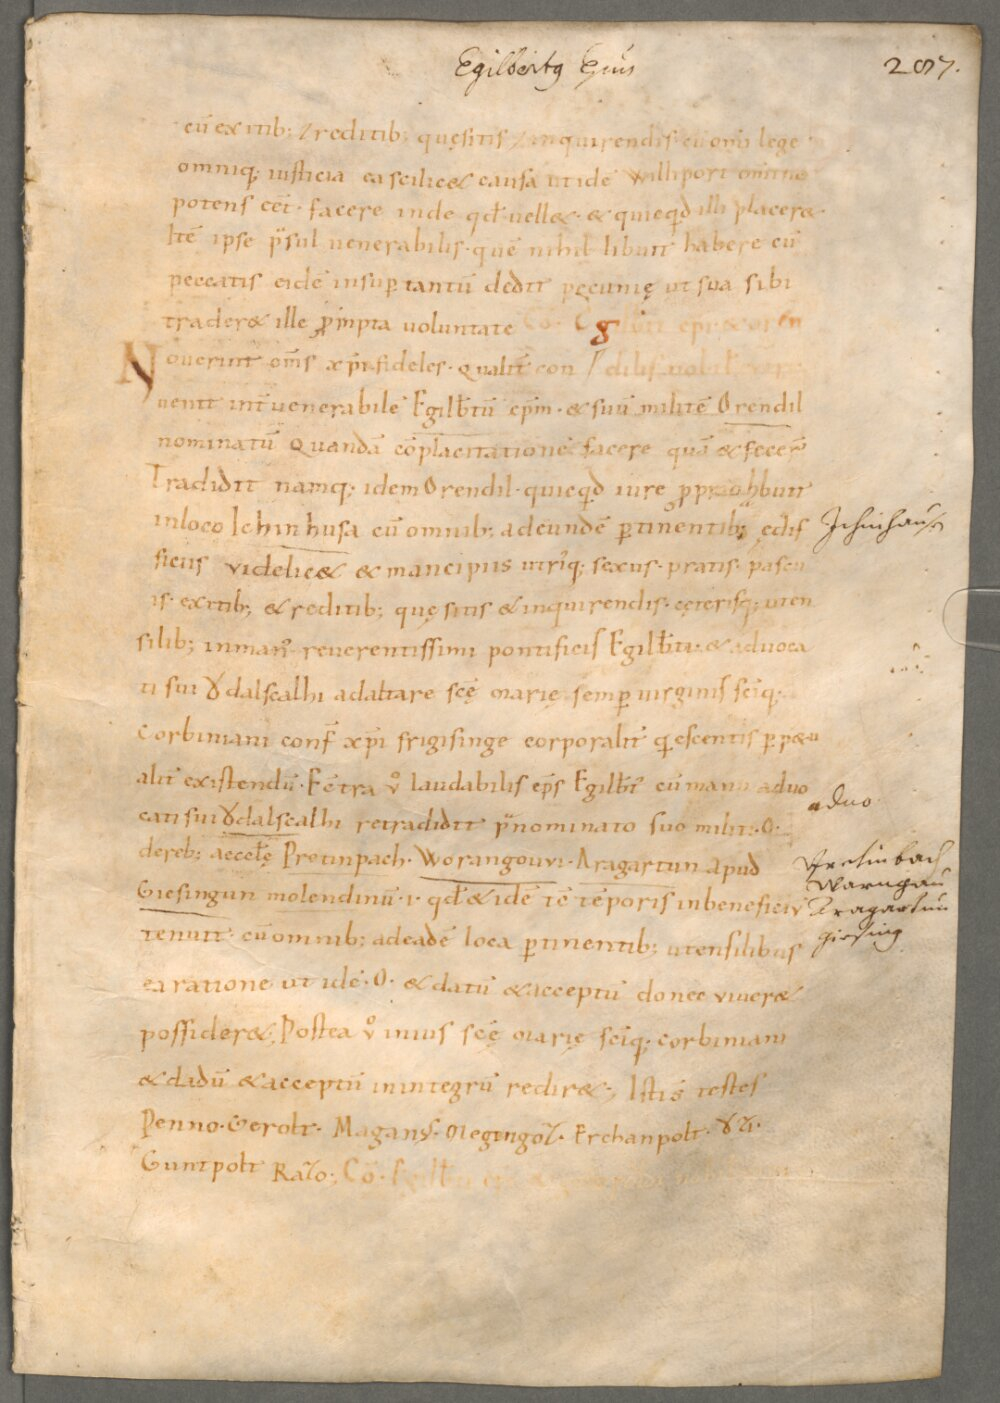 Egilbertꝰ Epūs
207.
cū exitib; / reditib; quęsitis / inquirendis. cū omī lege
omniq; iusticia ea scilic& causa ut idē Williport omnino
potens cēt. facere inde qd̄ uell&. & quicq̄d illi placer&.
Itē ipse p̄sul uenerabilis. quē nihil libuit habere cū
peccatis eidē insup tantū dedit pęcunię ut sua sibi
trader& ille prōpta uoluntate Cō. Eg
Nouerint om̄s xp̄i fideles. qualit̄ con / dilis nobil
uenit int̄ uenerabilē Egilb̄tū ep̄m. & suū militē Orendil
nominatū quandā cōplacitationē facere quā & fecer̄
Tradidit namq; idem Orendil. quicq̄d iure pprio hbuit
in loco Ichinhusa cū omnib; ad eundē ptinentib; ędi
Ichinhausen
ficiis videlic& & mancipiis utriq; sexus. pratis. pascu
is. exitib; & reditib; quęsitis & inquirendis. cęterisq; uten
silib; in man̄ reuerentissimi pontificis Egilb̄ti. & aduoca
ti sui Ȣdalscalhi ad altare scę̄ marię semp uirginis scīq;
Corbiniani conf̄ xp̄i frigisinge corporalit̄ q̄escentis pp&u
alit̄ existendū. Ec̄tra v̊ laudabilis ep̄s Egilb̄t cū manu aduo
aduo
cati sui Ȣdalscalhi retradidit p̄nominato suo militi. O.
dereb; accełę Pretinpach. Worangouvi. Aragartun apud
Pretinbach
Warngau
Giesingun molendinū .1. qd̄ & idē tē tēporis in beneficiū
Aragartun
Giesing
tenuit. cū omnib; ad eadē loca ptinentib; utensilibus
ea ratione ut idē. O. & datū & acceptū donec viuer&
possider&. Postea v̊ in ius scę̄ marię scīq; corbiniani
& dadū & acceptū in integrū redir&; Istis testes
Penno. Gerolt. Magan. Megingoz. Erchanpolt.
Guntpolt Razo; Cō. Egilb̄ti